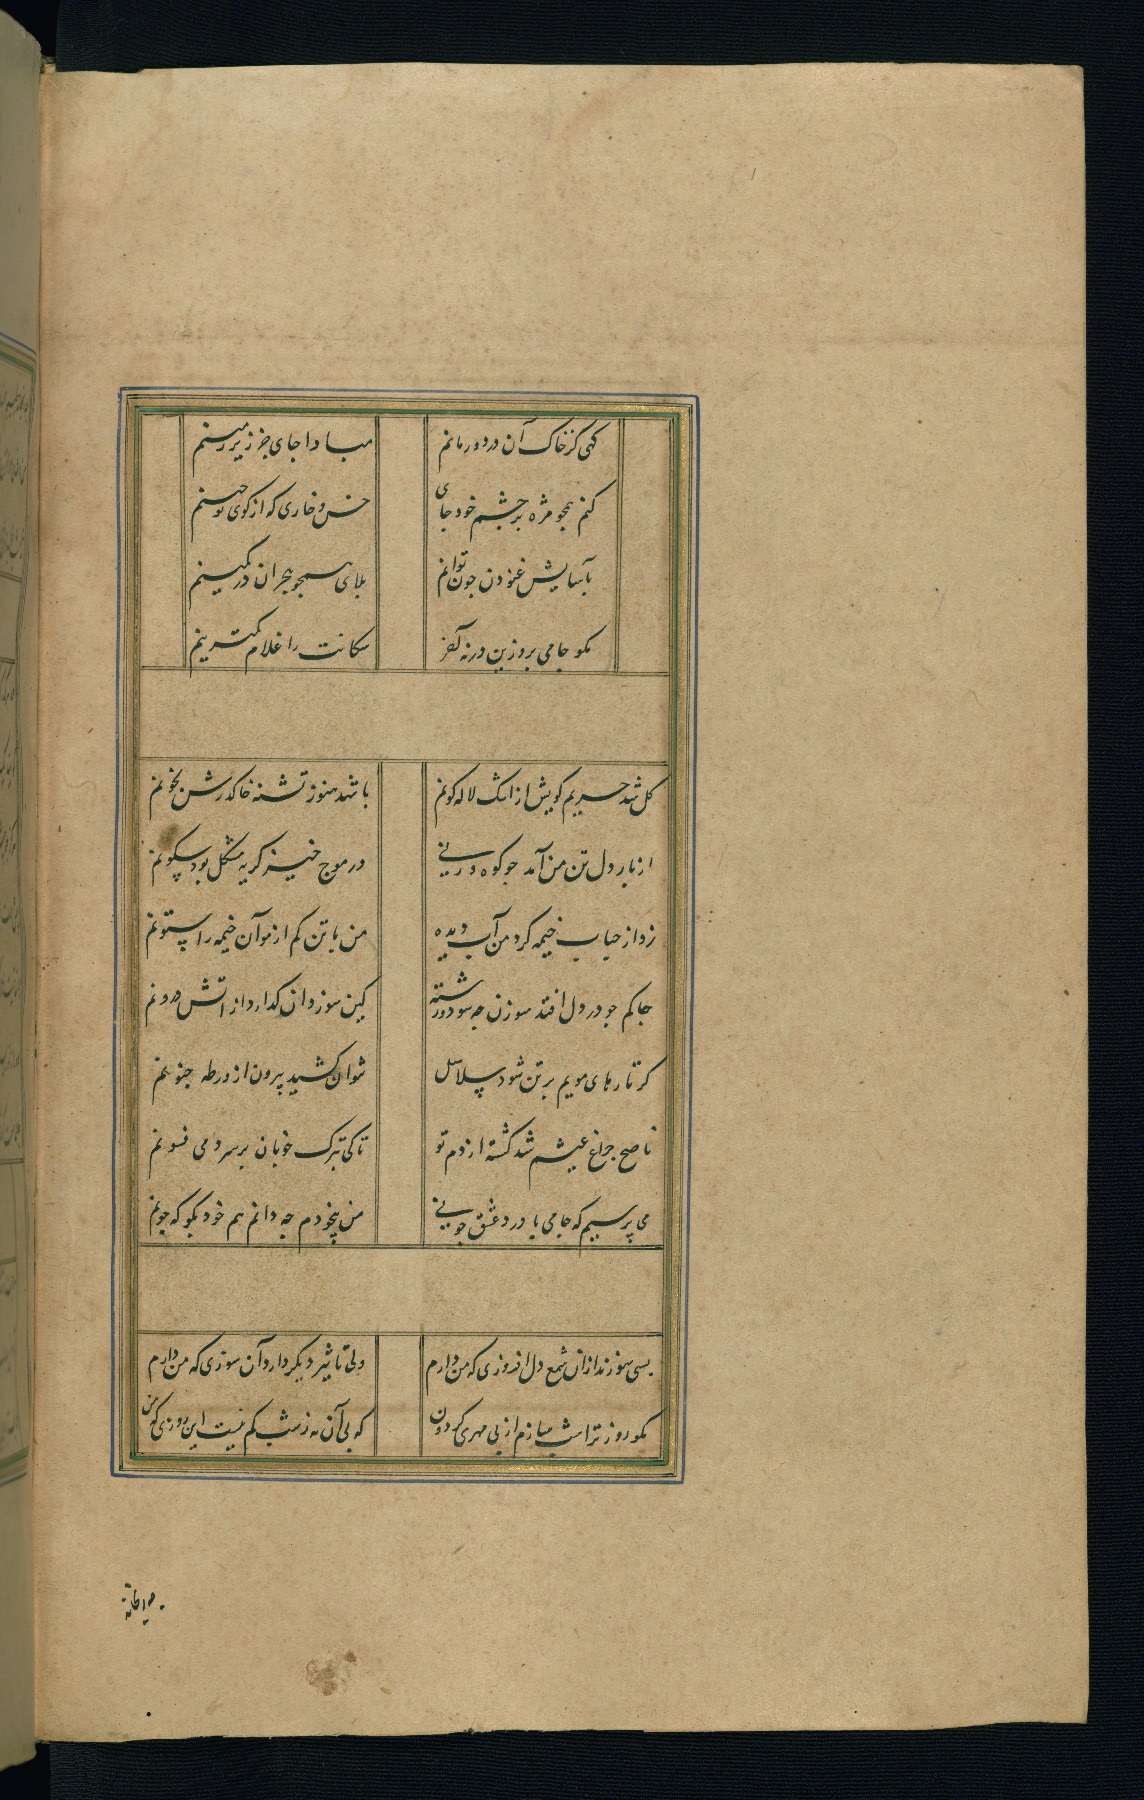 کهی کز خاک آن در دور مانم مبادا جای جز زیر زمینم
کنم همچو مژه بر چشم خود جای خس و خاری که از کوی تو چینم
بآسایش غنودن چون توانم بلای همچو هجران در کمینم
مکو جامی برو زین در نه آخر سکانت را غلام کمترینم
کل شد حریم کویش از اشک لاله کونم باشد هنوز تشنه خاک درش بخونم
از بار دل تن من آمد چو کوه در موج خیز کریه مشکل بود سکونم
زد از حباب خیمه کرد من آب دیده من با تن کم از مو آن خیمه را ستونم
چاکم چو در دل افتد سوزن چه سود و رشته کین سوزد آن کدازد از آتش درونم
کر تارهای مویم بر تن شود سلاسل نتوان کشید بیرون از ورطه جنونم
ناصح چراغ عیشم شد کشته از دم تو تا کی بترک خوبان بر سر دمی فسونم
می پرسیم که جامی با درد عشق چونی من بیخودم چه دانم هم خود بکو که چونم
بسی سوزند ازان شمع دل افروزی که من دارم ولی تاثیر دیکر دارد آن سوزی که من دارم
مکو روز ترا شب سازم از بی مهری کردون که بی آن مه ز شب کم نیست این روزی که من